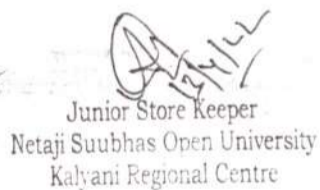 12/4/22
Junior Store Keeper
Netaji Suubhas Open University
Kalyani Regional Centre